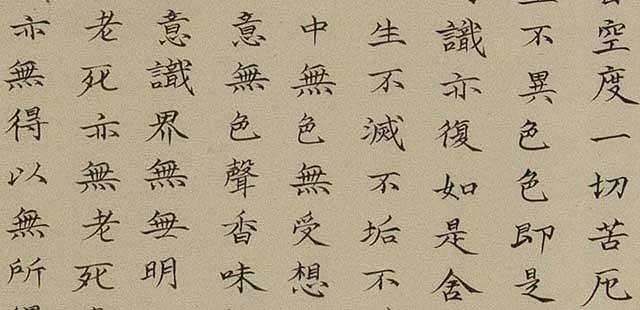 空度一切苦厄
不異色色即是
識亦復如是舍
生不滅不垢不
中無色無受想
意無色聲香味
意識界無無明
老死亦無老死
亦無得以無所